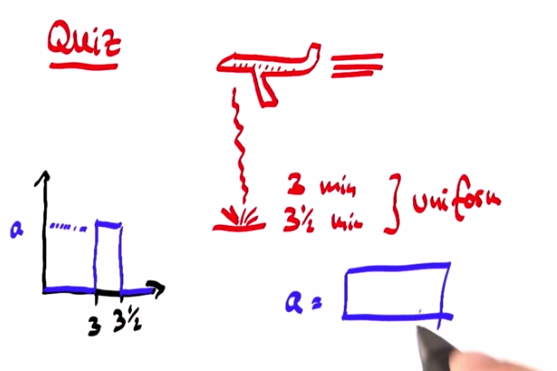 Quiz
3 min
3½ min
} uniform
a
3 3½
a =